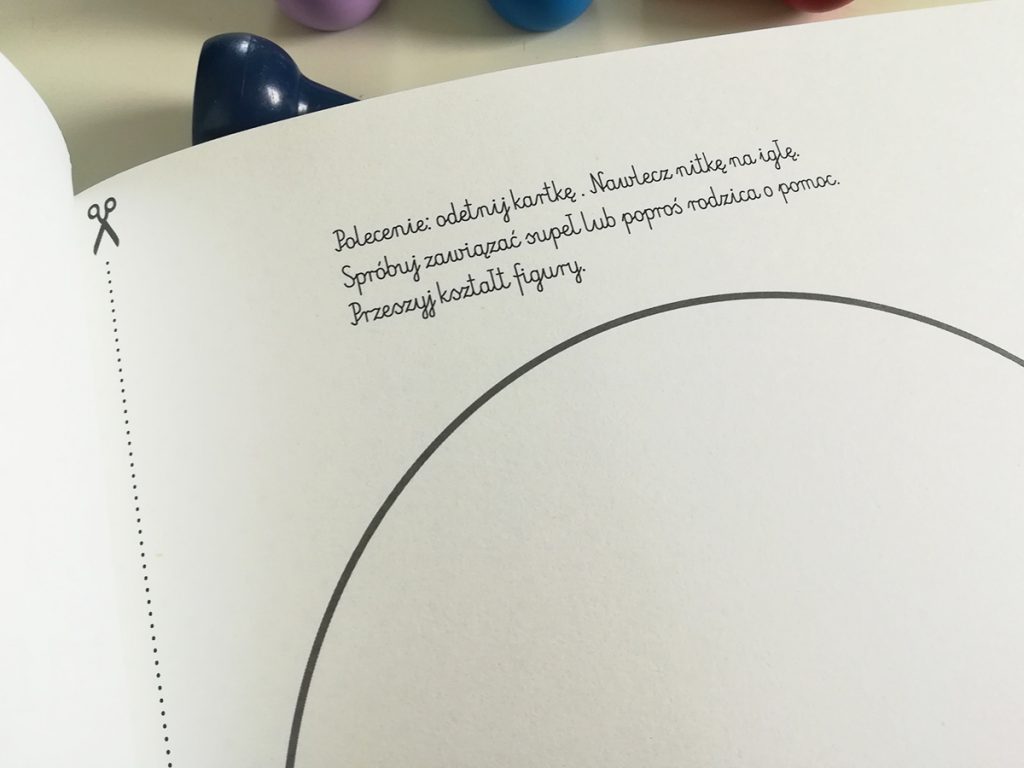 Polecenie: odetnij kartkę. Nawlecz nitkę na igłę.
Spróbuj zawiązać supeł lub poproś rodzica o pomoc.
Przeszyj kształt figury.